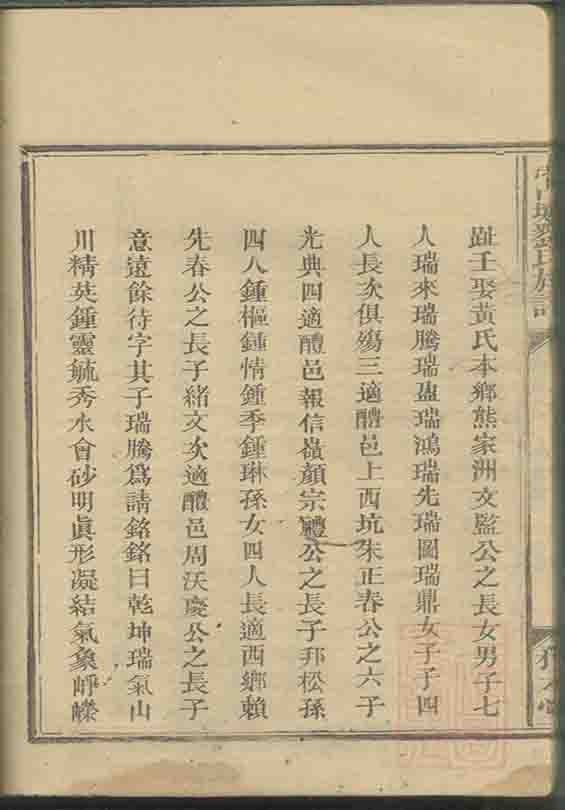 趾壬娶黃氏本鄉熊家洲文監公之長女男子七
人瑞來瑞騰瑞盈瑞鴻瑞先瑞圖瑞鼎女子子四
人長次俱殤三適醴邑上西坑朱正春公之六子
光典四適醴邑報信嶺顏宗禮公之長子邦松孫
四人鍾樞鍾情鍾季鍾琳孫女四人長適西鄉賴
先春公之長子緒文次適醴邑周沃慶公之長子
意遠餘待字其子瑞騰爲請銘銘曰乾坤瑞氣山
川精英鍾靈毓秀水會砂明眞形凝結氣象崢嶸